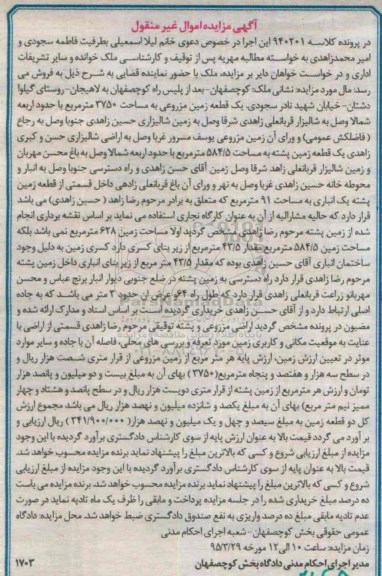 آگهی مزایده اموال غیر منقول
در پرونده کلاسه ۹۴۰۲۰۱ این اجرا در خصوص دعوی خانم لیلا اسمعیلی بطرفیت فاطمه سجودی و
امیر محمدزاهدی به خواسته مطالبه مهریه پس از توقیف و کارشناسی ملک خوانده و سایر تشریفات
اداری و در خواست خواهان دایر بر مزایده، ملک با حضور نماینده قضایی به شرح ذیل به فروش می
رسد: مال مورد مزایده: نشانی ملک: کوچصفهان- بعد از پلیس راه کوچصفهان به لاهیجان- روستای گیلوا
دشتان- خیابان شهید نادر سجودی. یک قطعه زمین مزروعی به مساحت ۳۷۵۰ مترمربع با حدود اربعه
شمالا وصل به شالیزار قربانعلی زاهدی شرقا وصل به زمین شالیزاری حسین زاهدی جنوبا وصل به رجاع
(فاضلکش عمومی) و ورای آن زمین مزروعی یوسف مسرور غربا وصل به اراضی شالیزاری حسن و کبری
زاهدی یک قطعه زمین پشته به مساحت ۵۸۴/۵ مترمربع با حدود اربعه شمالا وصل به باغ محسن مهربان
و زمین شالیزار قربانعلی زاهد شرقا وصل زمین آقای حسن زاهدی و راه دسترسی جنوبا وصل به انبار و
محوطه خانه حسین زاهدی غربا وصل به نهر و ورای آن باغ قربانعلی زادهی داخل قسمتی از قطعه زمین
پشته یک انباری به مساحت ۹۱ مترمربع که متعلق به برادر مرحوم رضا زاهد ( حسین زاهدی) می باشد
قرار دارد که حالیه مشارالیه از آن به عنوان کارگاه نجاری استفاده می نماید بر اساس نقشه برداری انجام
شده از زمین پشته مرحوم رضا زاهدی مشخص گردید اولا مساحت زمین ۶۲۸ مترمربع نمی باشد بلکه
مساحت زمین ۵۸۴/۵ مترمربع مقدار ۴۳/۵ مترمربع از زیر بنای کسری دارد کسری زمین به دلیل وجود
ساختمان انباری آقای حسین زاهدی بوده که مقدار ۴۳/۵ متر مربع از زیر بنای انباری داخل زمین پشته
مرحوم رضا زاهدی قرار دارد راه دسترسی به زمین پشته در ضلع جنوبی دیوار انبار برنج عباس و محسن
مهربانو زراعت قربانعلی زاهدی قرار دارد که طول راه ۶۴ و عرض آن حدود ۳ متر می باشد که به جاده
اصلی ارتباط دارد و از آقای حسین زاهدی خریداری گردیده است بر اساس اسناد و مدارک ارائه شده و
مضبون در پرونده مشخص گردید اراضی مزروعی و پشته توقیفی مرحوم رضا زاهدی قسمتی از اراضی با
عنایت به موقعیت مکانی و کاربری زمین مورد تعرفه و بررسی های محلی، فاصله آن با جاده و سایر موارد
موثر در تعیین ارزش زمین، ارزش پایه هر متر مربع از زمین مزروعی از قرار متری شصت هزار ریال و
در سطح سه هزار و هفتصد و پنجاه مترمربع(۳۷۵۰) بهای آن به مبلغ بیست و دو میلیون و پانصد هزار
تومان و ارزش هر مترمربع از زمین پشته از قرار متری دویست هزار ریال و در سطح پانصد و هشتاد و چهار
ممیز نیم متر مربع) بهای آن به مبلغ یکصد و شانزده میلیون و نهصد هزار ریال می باشد مجموع ارزش
کل دو قطعه زمین به مبلغ سیصد و چهل و یک میلیون و نهصد هزار( ۳۴۱/۹۰۰/۰۰۰) ریال ارزیابی و
بر آورد می گردد قیمت بالا به عنوان ارزش پایه از سوی کارشناس دادگستری برآورد گردیده با این وجود
مزایده از مبلغ ارزیابی شروع و کسی که بالاترین مبلغ را پیشنهاد نماید برنده مزایده محسوب خواهد شد.
قیمت بالا به عنوان پایه از سوی کارشناس دادگستری برآورد گردیده با این وجود مزایده از مبلغ ارزیابی
شروع و کسی که بالاترین مبلغ را پیشنهاد نماید برنده مزایده محسوب خواهد شد. برنده مزایده می بایست
ده درصد مبلغ خریداری شده را در جلسه مزایده پرداخت و مابقی را ظرف یک ماه تادیه نماید در صورت
عدم تادیه مابقی مبلغ ده درصد واریزی به نفع صندوق دادگستری ضبط خواهد شد. محل مزایده: دادگاه
عمومی حقوقی بخش کوچصفهان- شعبه اجرای احکام مدنی
زمان مزایده: ساعت ۱۰ الی۱۲ مورخه ۹۵/۳/۲۹
مدیر اجرای احکام مدنی دادگاه بخش کوچصفهان ۱۷۰۳